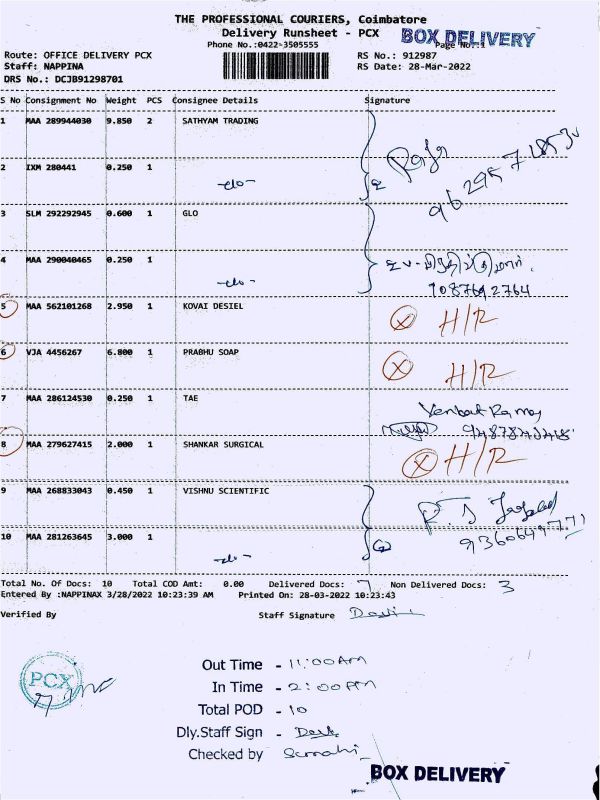 THE PROFESSIONAL COURIERS, Coimbatore
Delivery Runsheet - PCX BOX DELIVERY
Phone No.:0422-3505555 Page No.:1
Route: OFFICE DELIVERY PCX RS No.: 912987
Staff: NAPPINA RS Date: 28-Mar-2022
DRS No.: DCJB91298701
S No Consignment No Weight PCS Consignee Details Signature
1 MAA 289944030 9.850 2 SATHYAM TRADING
Raja
2 IXM 280441 0.250 1 -do-
3 SLM 292292945 0.600 1 GLO
4 MAA 290040465 0.250 1 -do-
5 MAA 562101268 2.950 1 KOVAI DESIEL H/R
6 VJA 4456267 6.800 1 PRABHU SOAP H/R
7 MAA 286124530 0.250 1 TAE Venkat Raman
8 MAA 279627415 2.000 1 SHANKAR SURGICAL H/R
9 MAA 268833043 0.450 1 VISHNU SCIENTIFIC
10 MAA 281263645 3.000 1 -do-
Total No. Of Docs: 10 Total COD Amt: 0.00 Delivered Docs: 7 Non Delivered Docs: 3
Entered By :NAPPINAX 3/28/2022 10:23:39 AM Printed On: 28-03-2022 10:23:43
Verified By Staff Signature
PCX
Out Time - 11:00AM
In Time - 2:00PM
Total POD - 10
Dly.Staff Sign -
Checked by
BOX DELIVERY